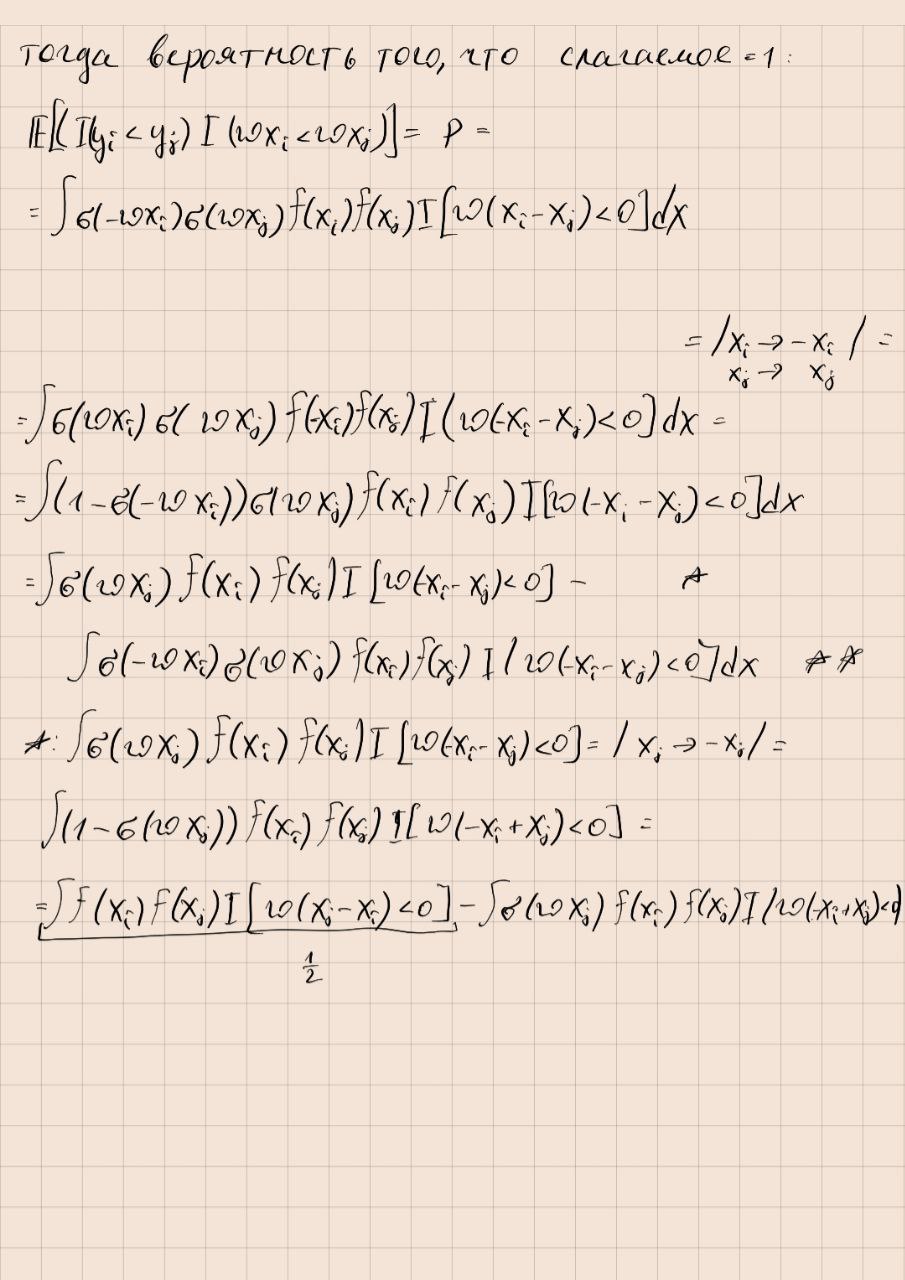 тогда вероятность того, что слагаемое = 1:
𝔼[(I(y_i < y_j) I (wx_i < wx_j)] = p =
= ∫ σ(-wx_i) σ(wx_j) f(x_i) f(x_j) I [w(x_i - x_j) < 0] dx
= / x_i → - x_i / =
x_j → x_j
= ∫ σ(wx_i) σ( wx_j) f(-x_i) f(x_j) I (w(-x_i - x_j) < 0] dx =
= ∫ (1 - σ(-wx_i)) σ(wx_j) f(x_i) f(x_j) I [w(-x_i - x_j) < 0] dx
= ∫ σ(wx_j) f(x_i) f(x_j) I [w(-x_i - x_j) < 0] - *
∫ σ(-wx_i) σ(wx_j) f(x_i) f(x_j) I [w(-x_i - x_j) < 0] dx **
*: ∫ σ(wx_j) f(x_i) f(x_j) I [w(-x_i - x_j) < 0] = / x_j → - x_j / =
∫ (1 - σ(wx_j)) f(x_i) f(x_j) I [w(-x_i + x_j) < 0] =
= ∫ f(x_i) f(x_j) I [w(x_j - x_i) < 0] - ∫ σ(wx_j) f(x_i) f(x_j) I [w(-x_i + x_j) < 0]
1/2